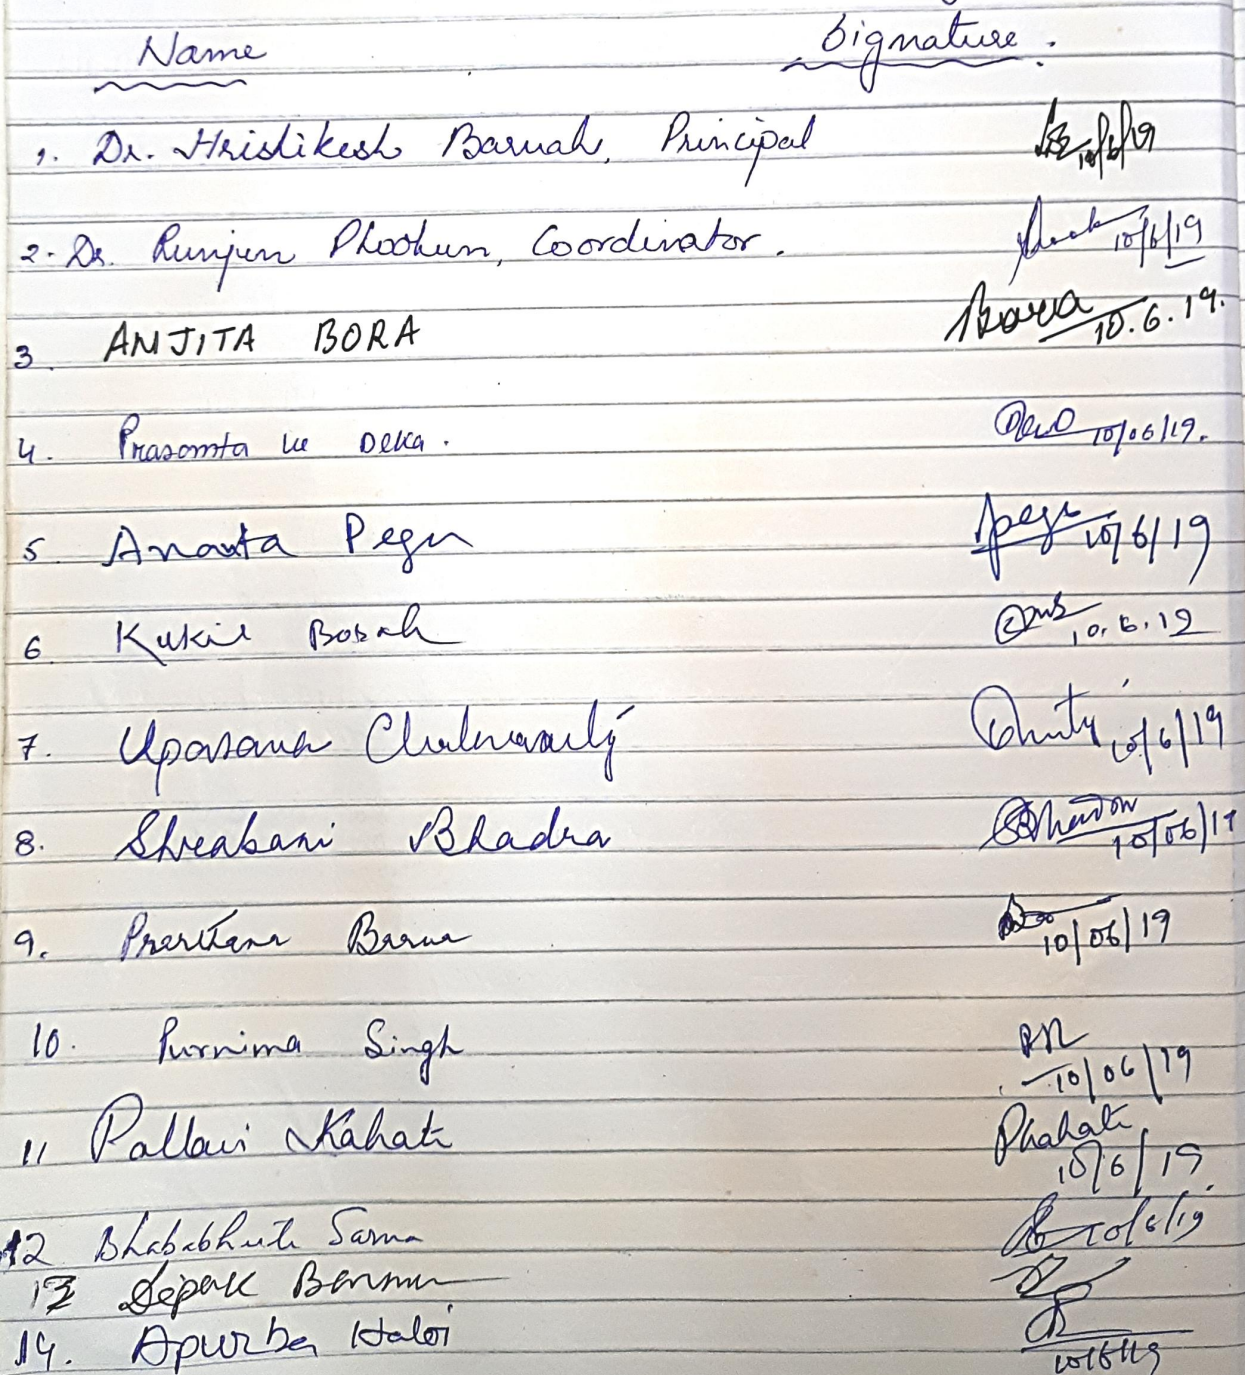 Name Signature.
1. Dr. Hrishikesh Baruah, Principal 10/6/19
2. Dr. Runjun Phookun, Coordinator. 10/6/19
3. ANJITA BORA Bora 10.6.19.
4. Prasomta Deka. 10/06/19.
5 Ananta Pegu Pegu 10/6/19
6 Kukil Borah 10.6.19
7. Upasana Chakravarty 10/6/19
8. Shreabani Bhadra 10/06/19
9. Prarthana Barua 10/06/19
10. Purnima Singh 10/06/19
11 Pallavi Kahate Pkahate 10/6/19.
12 Bhababhuti Sarma 10/6/19
13 Dipak Barman
14. Apurba Haloi 10/6/19